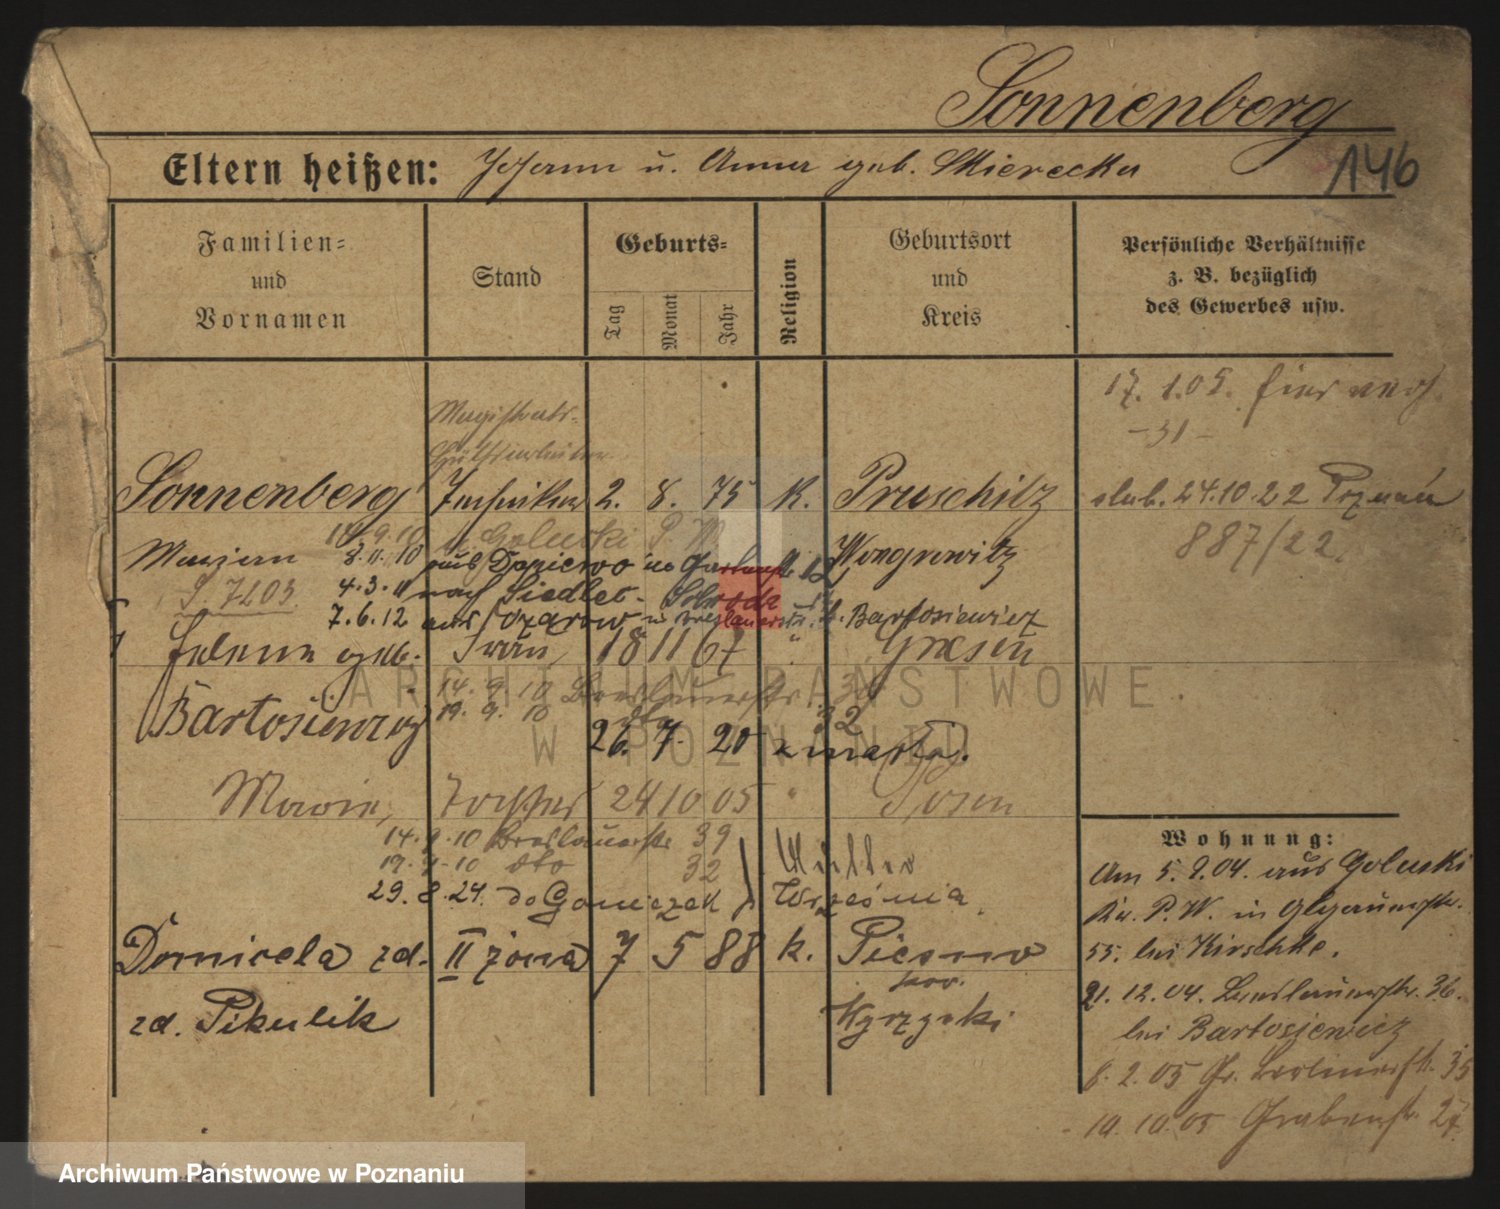 Sonnenberg
Eltern heißen: Johann u. Anna geb. Skierecka
146
Familien- und Vornamen
Stand
Geburts-
Tag
Monat
Jahr
Religion
Geburtsort und Kreis
Persönliche Verhältnisse
z. B. bezüglich
des Gewerbes usw.
17. 1.05. hier
-31-
Magistrats-
Sonnenberg Techniker 2. 8. 75 K. Pruschitz
ślub. 24.10.22 Poznań
887/22
14.9.10 n Goluski P. W.
Maryan 8.11.10 aus Dopiewo
Wongrowitz
S. 7203 4.3.11 nach Siedlec. Schroda
7.6.12 aus
b. Bartosiewicz
Helene geb. Frau, 18 11 67 " Gnesen
14.9.10 Breslauerstr. 39
Bartosiewicz 19.9.10 dto 32
26. 7. 20 zmarła.
Marie, Tochter 24 10 05 " Posen
14.9.10 Breslauerstr 39
19.9.10 dto 32
29.8.24. do Września
Domicela zd. II żona 7 5 88 k.
pow.
zd. Pikulik
Wohnung:
Am 5.9.04. aus Goluski
Kr. P. W. in
55. bei Kirschke.
21.12.04. Breslauerstr. 36.
bei Bartosiewicz
8.2.05 Gr. Berlinerstr. 35
10.10.05 Grabenstr. 27
ARCHIWUM PAŃSTWOWE
W POZNANIU
Archiwum Państwowe w Poznaniu